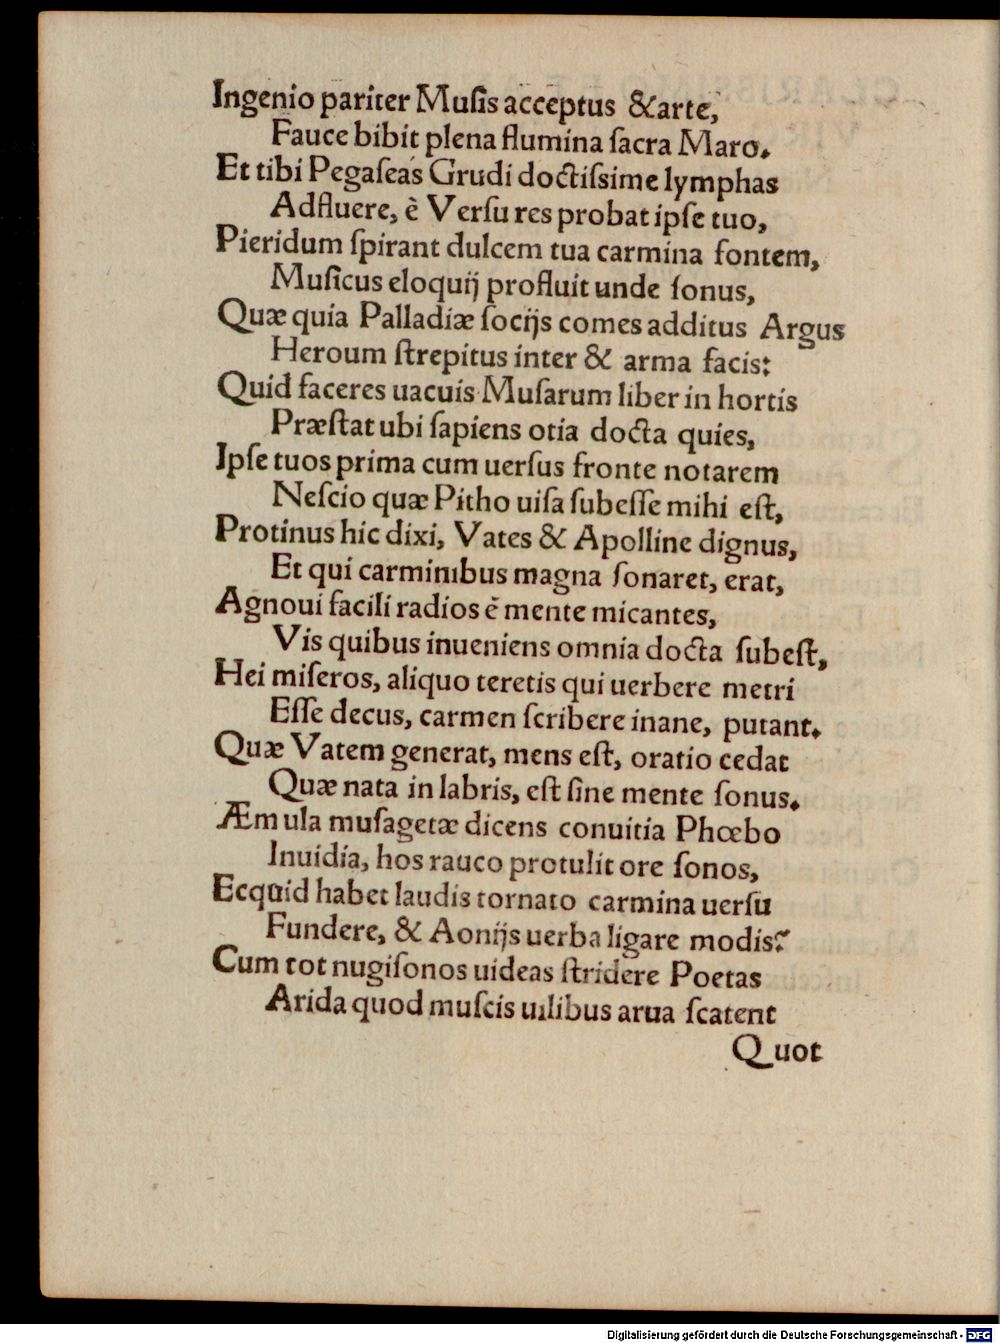 Ingenio pariter Muſis acceptus &arte,
Fauce bibit plena flumina ſacra Maro.
Et tibi Pegaſeas Grudi doctiſsime lymphas
Adfluere, è Verſu res probat ipſe tuo,
Pieridum ſpirant dulcem tua carmina fontem,
Muſicus eloquij profluit unde ſonus,
Quæ quia Palladiæ ſocijs comes additus Argus
Heroum ſtrepitus inter & arma facis:
Quid faceres uacuis Muſarum liber in hortis
Præſtat ubi ſapiens otia docta quies,
Ipſe tuos prima cum uerſus fronte notarem
Neſcio quæ Pitho uiſa ſubeſſe mihi eſt,
Protinus hic dixi, Vates & Apolline dignus,
Et qui carminibus magna ſonaret, erat,
Agnoui facili radios è mente micantes,
Vis quibus inueniens omnia docta ſubeſt,
Hei miſeros, aliquo teretis qui uerbere metri
Eſſe decus, carmen ſcribere inane, putant.
Quæ Vatem generat, mens eſt, oratio cedat
Quæ nata in labris, eſt ſine mente ſonus.
Æmula muſagetæ dicens conuitia Phœbo
Inuidia, hos rauco protulit ore ſonos,
Ecquid habet laudis tornato carmina uerſu
Fundere, & Aonijs uerba ligare modis?
Cum tot nugiſonos uideas ſtridere Poetas
Arida quod muſcis uilibus arua ſcatent
Quot
Digitalisierung gefördert durch die Deutsche Forschungsgemeinschaft - DFG